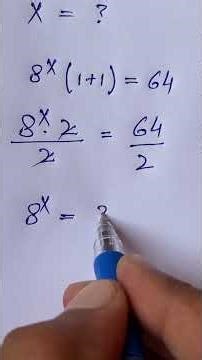 x = ?
8^x (1+1) = 64
8^x · 2 / 2 = 64 / 2
8^x = 3